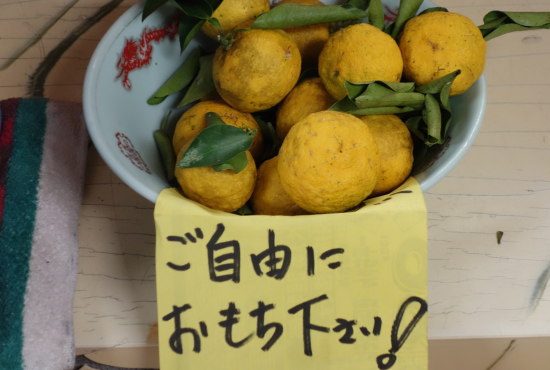 ご自由に
おもち下さい!